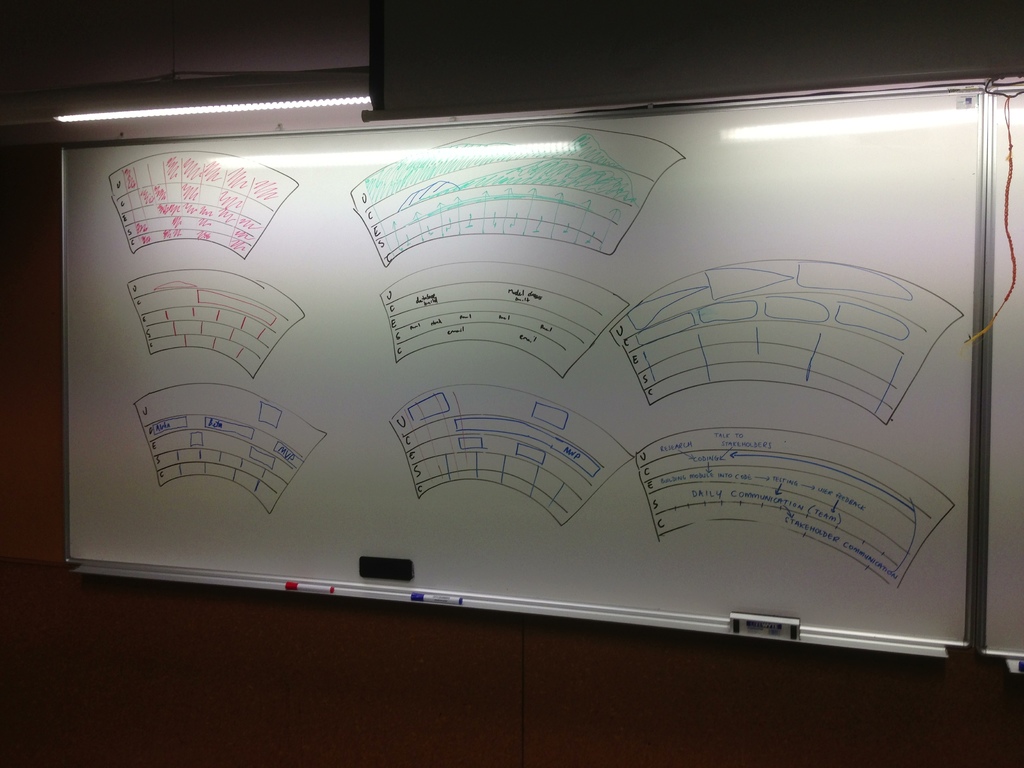 U
C
E
S
C
U
C
E
S
C
U
C
E
S
C
U
C
E
S
C
database
built
Model
built
email
email
U
C
E
S
C
U
C
E
S
C
MVP
U
C
E
S
C
MVP
U
C
E
S
C
RESEARCH
TALK TO
STAKEHOLDERS
CODING
BUILDING MODULE INTO CODE → TESTING → USER FEEDBACK
DAILY COMMUNICATION (TEAM)
STAKEHOLDER COMMUNICATION